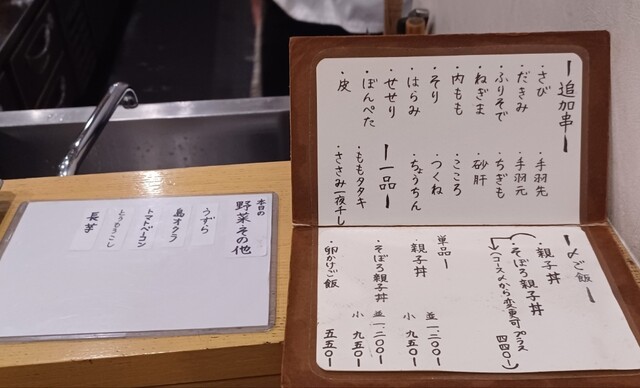 追加串
・さび
・だきみ
・ふりそで
・ねぎま
・内もも
・そり
・はらみ
・せせり
・ぼんぺた
・皮
・手羽先
・手羽元
・ちぎも
・砂肝
・こころ
・つくね
・ちょうちん
一品
・ももタタキ
・ささみ一夜干し
〆ご飯
・親子丼
・そぼろ親子丼
(コース〆から変更可プラス
四四〇-)
単品
・親子丼
並 一、二〇〇-
小 九五〇-
・そぼろ親子丼
並 一、二〇〇-
小 九五〇-
・卵かけご飯
五五〇-
本日の
野菜その他
うずら
島オクラ
トマトベーコン
長芋